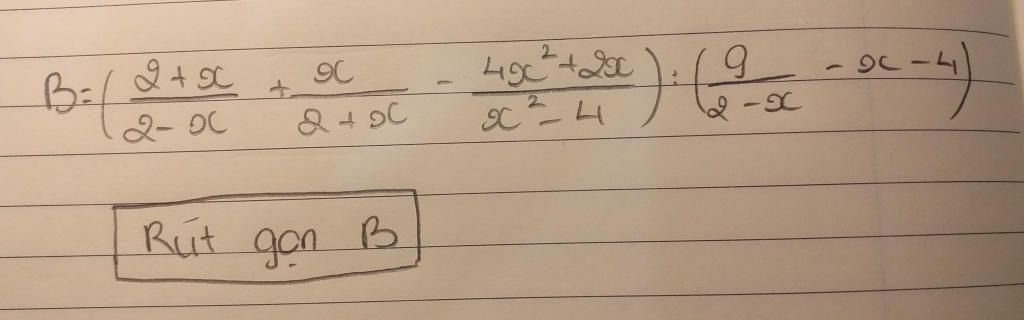 B=(\frac{2+x}{2-x} + \frac{x}{2+x} - \frac{4x^2+2x}{x^2-4}):(\frac{9}{2-x} - x-4)
Rút gọn B